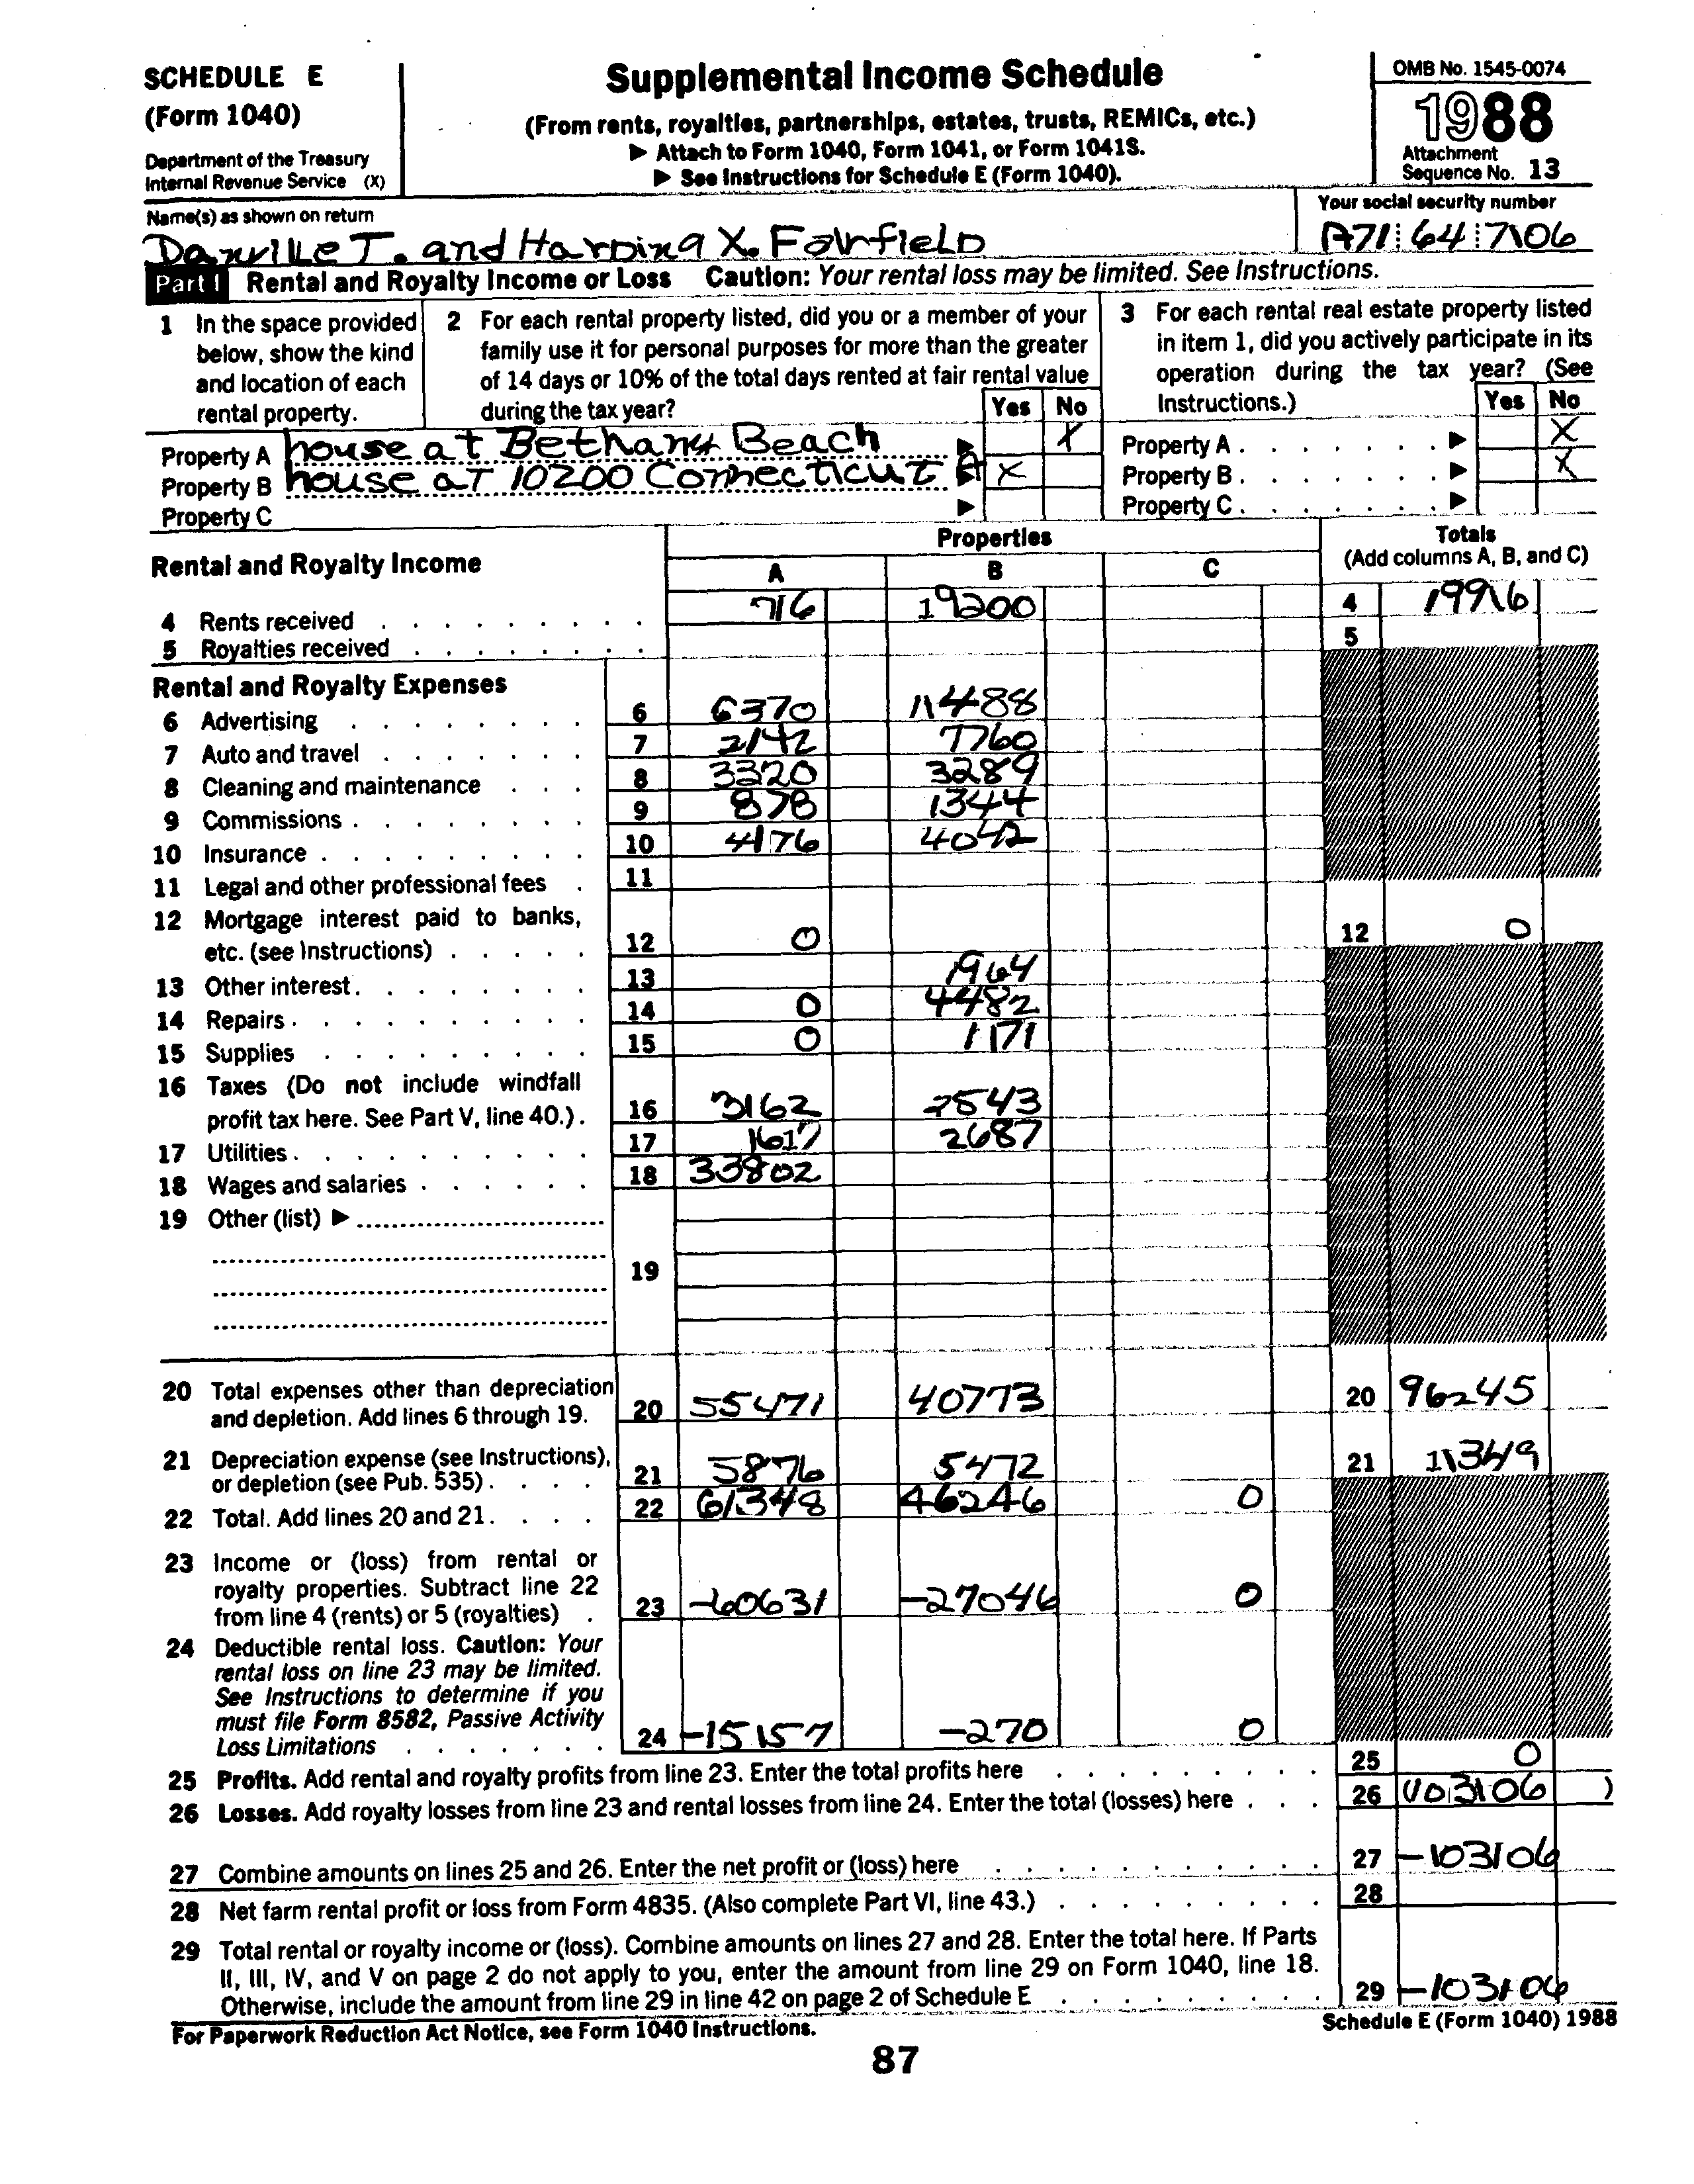 SCHEDULE E
(Form 1040)
Department of the Treasury
Internal Revenue Service (X)
Supplemental Income Schedule
(From rents, royalties, partnerships, estates, trusts, REMICs, etc.)
▶ Attach to Form 1040, Form 1041, or Form 1041S.
▶ See Instructions for Schedule E (Form 1040).
OMB No. 1545-0074
1988
Attachment
Sequence No. 13
Name(s) as shown on return
Danville T. and Harding X. Fairfield
Your social security number
A71 64 7106
Part I Rental and Royalty Income or Loss Caution: Your rental loss may be limited. See Instructions.
1 In the space provided
below, show the kind
and location of each
rental property.
2 For each rental property listed, did you or a member of your
family use it for personal purposes for more than the greater
of 14 days or 10% of the total days rented at fair rental value
during the tax year? Yes No
3 For each rental real estate property listed
in item 1, did you actively participate in its
operation during the tax year? (See
Instructions.) Yes No
Property A house at Bethany Beach ▶ X
Property B house at 10200 Connecticut A ▶ X
Property C ▶
Property A . . . . . . . ▶ X
Property B . . . . . . . ▶ X
Property C . . . . . . . ▶
Rental and Royalty Income
Properties
A B C
Totals
(Add columns A, B, and C)
4 Rents received 716 19200 4 19916
5 Royalties received 5
Rental and Royalty Expenses
6 Advertising 6 6370 11488
7 Auto and travel 7 2142 7760
8 Cleaning and maintenance 8 3320 3289
9 Commissions 9 878 1344
10 Insurance 10 4176 4042
11 Legal and other professional fees 11
12 Mortgage interest paid to banks,
etc. (see Instructions) 12 0 12 0
13 Other interest 13 1964
14 Repairs 14 0 4482
15 Supplies 15 0 1171
16 Taxes (Do not include windfall
profit tax here. See Part V, line 40.) 16 3162 2543
17 Utilities 17 1617 2687
18 Wages and salaries 18 33802
19 Other (list) ▶
19
20 Total expenses other than depreciation
and depletion. Add lines 6 through 19. 20 55471 40773 20 96245
21 Depreciation expense (see Instructions),
or depletion (see Pub. 535) 21 5876 5472 21 11349
22 Total. Add lines 20 and 21. 22 61348 46246 0
23 Income or (loss) from rental or
royalty properties. Subtract line 22
from line 4 (rents) or 5 (royalties) 23 -60631 -27046 0
24 Deductible rental loss. Caution: Your
rental loss on line 23 may be limited.
See Instructions to determine if you
must file Form 8582, Passive Activity
Loss Limitations 24 -15157 -270 0
25 Profits. Add rental and royalty profits from line 23. Enter the total profits here 25 0
26 Losses. Add royalty losses from line 23 and rental losses from line 24. Enter the total (losses) here 26 (103106 )
27 Combine amounts on lines 25 and 26. Enter the net profit or (loss) here 27 -103106
28 Net farm rental profit or loss from Form 4835. (Also complete Part VI, line 43.) 28
29 Total rental or royalty income or (loss). Combine amounts on lines 27 and 28. Enter the total here. If Parts
II, III, IV, and V on page 2 do not apply to you, enter the amount from line 29 on Form 1040, line 18.
Otherwise, include the amount from line 29 in line 42 on page 2 of Schedule E 29 -103106
For Paperwork Reduction Act Notice, see Form 1040 Instructions.
Schedule E (Form 1040) 1988
87